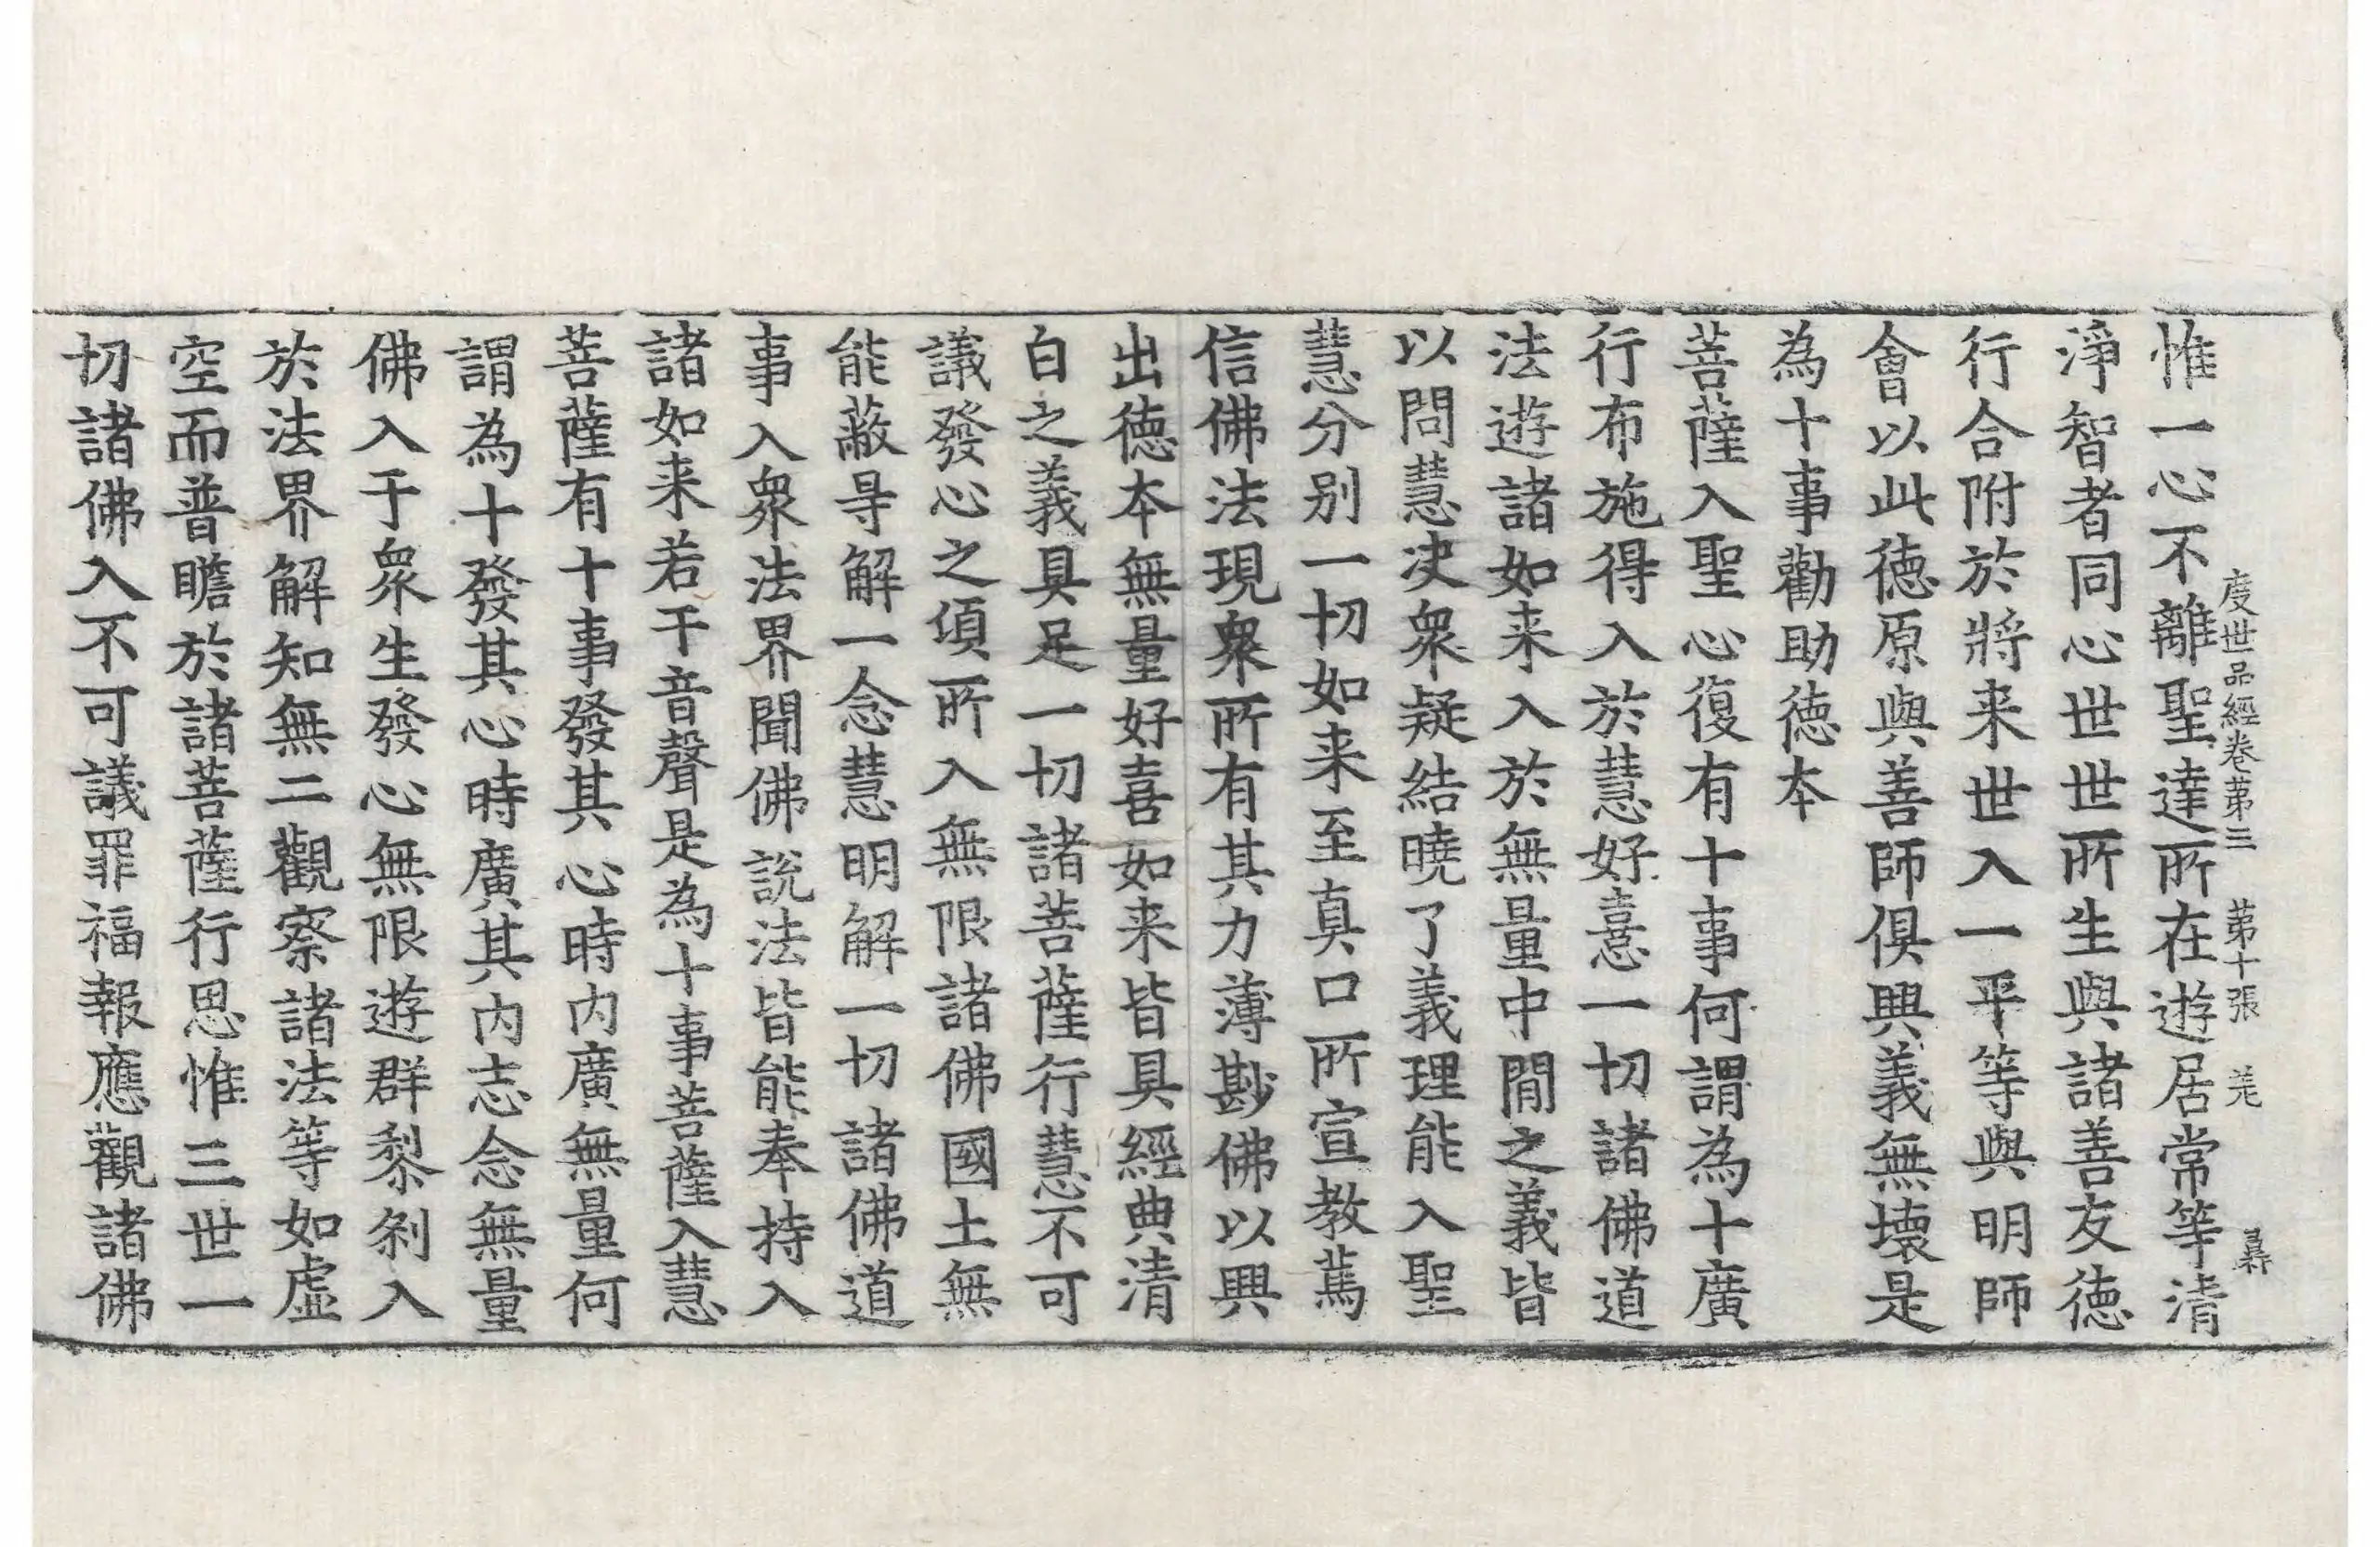 度世品經卷第三 第十張 羌
惟一心不離聖達所在遊居常等清
淨智者同心世世所生與諸善友德
行合附於將来世入一平等與明師
會以此德原與善師俱興義無壞是
為十事勸助德本
菩薩入聖心復有十事何謂為十廣
行布施得入於慧好憙一切諸佛道
法遊諸如来入於無量中間之義皆
以問慧決衆疑結曉了義理能入聖
慧分别一切如来至真口所宣教篤
信佛法現衆所有其力薄尠佛以興
出德本無量好喜如来皆具經典清
白之義具足一切諸菩薩行慧不可
議發心之頃所入無限諸佛國土無
能蔽㝵解一念慧明解一切諸佛道
事入衆法界聞佛說法皆能奉持入
諸如来若干音聲是為十事菩薩入慧
菩薩有十事發其心時内廣無量何
謂為十發其心時廣其内志念無量
佛入于衆生發心無限遊群黎剎入
於法界解知無二觀察諸法等如虛
空而普瞻於諸菩薩行思惟三世一
切諸佛入不可議罪福報應觀諸佛